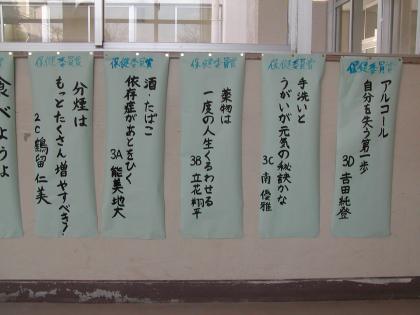 保健委員賞
アルコール
自分を失う第一歩
3D 吉田純登
保健委員賞
手洗いと
うがいが元気の秘訣かな
3C 南 優雅
保健委員賞
薬物は
一度の人生くるわせる
3B 立花翔平
保健委員賞
酒・たばこ
依存症があとをひく
3A 能美地大
保健委員賞
分煙は
もっとたくさん増やすべき!
2C 鶴留 仁美
食べようよ